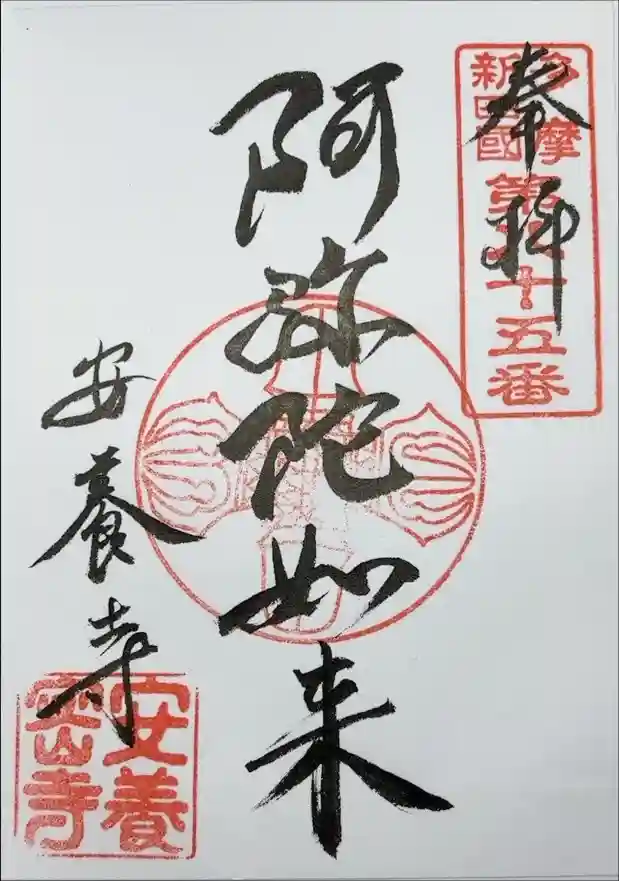 奉拝
多摩
新四國
第八十五番
阿弥陀如来
安養寺
安養
密寺